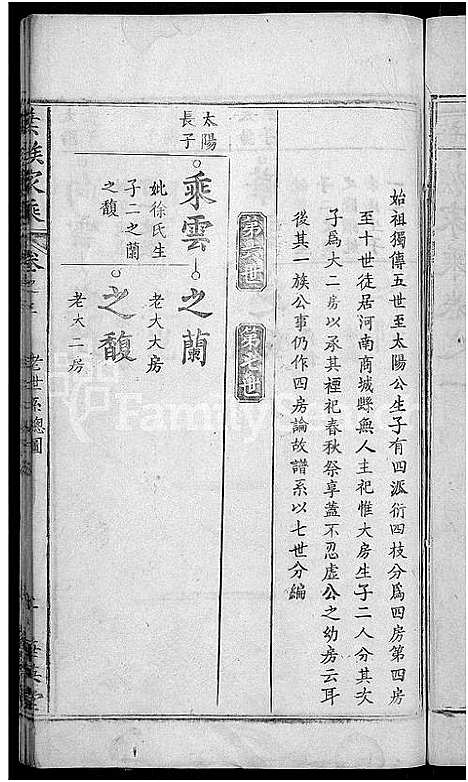 始祖獨傳五世至太陽公生子有四派衍四枝分爲四房第四房
至十世徒居河南商城縣無人主祀惟大房生子二人分其次
子爲大二房以承其禋祀春秋祭享蓋不忍虛公之幼房云耳
後其一族公事仍作四房論故譜系以七世分編
第六世
第七世
太陽
長子
乘雲
妣徐氏生
子二之蘭
之馥
之蘭
老大大房
之馥
老大二房
族家乘
卷之
老世系總圖